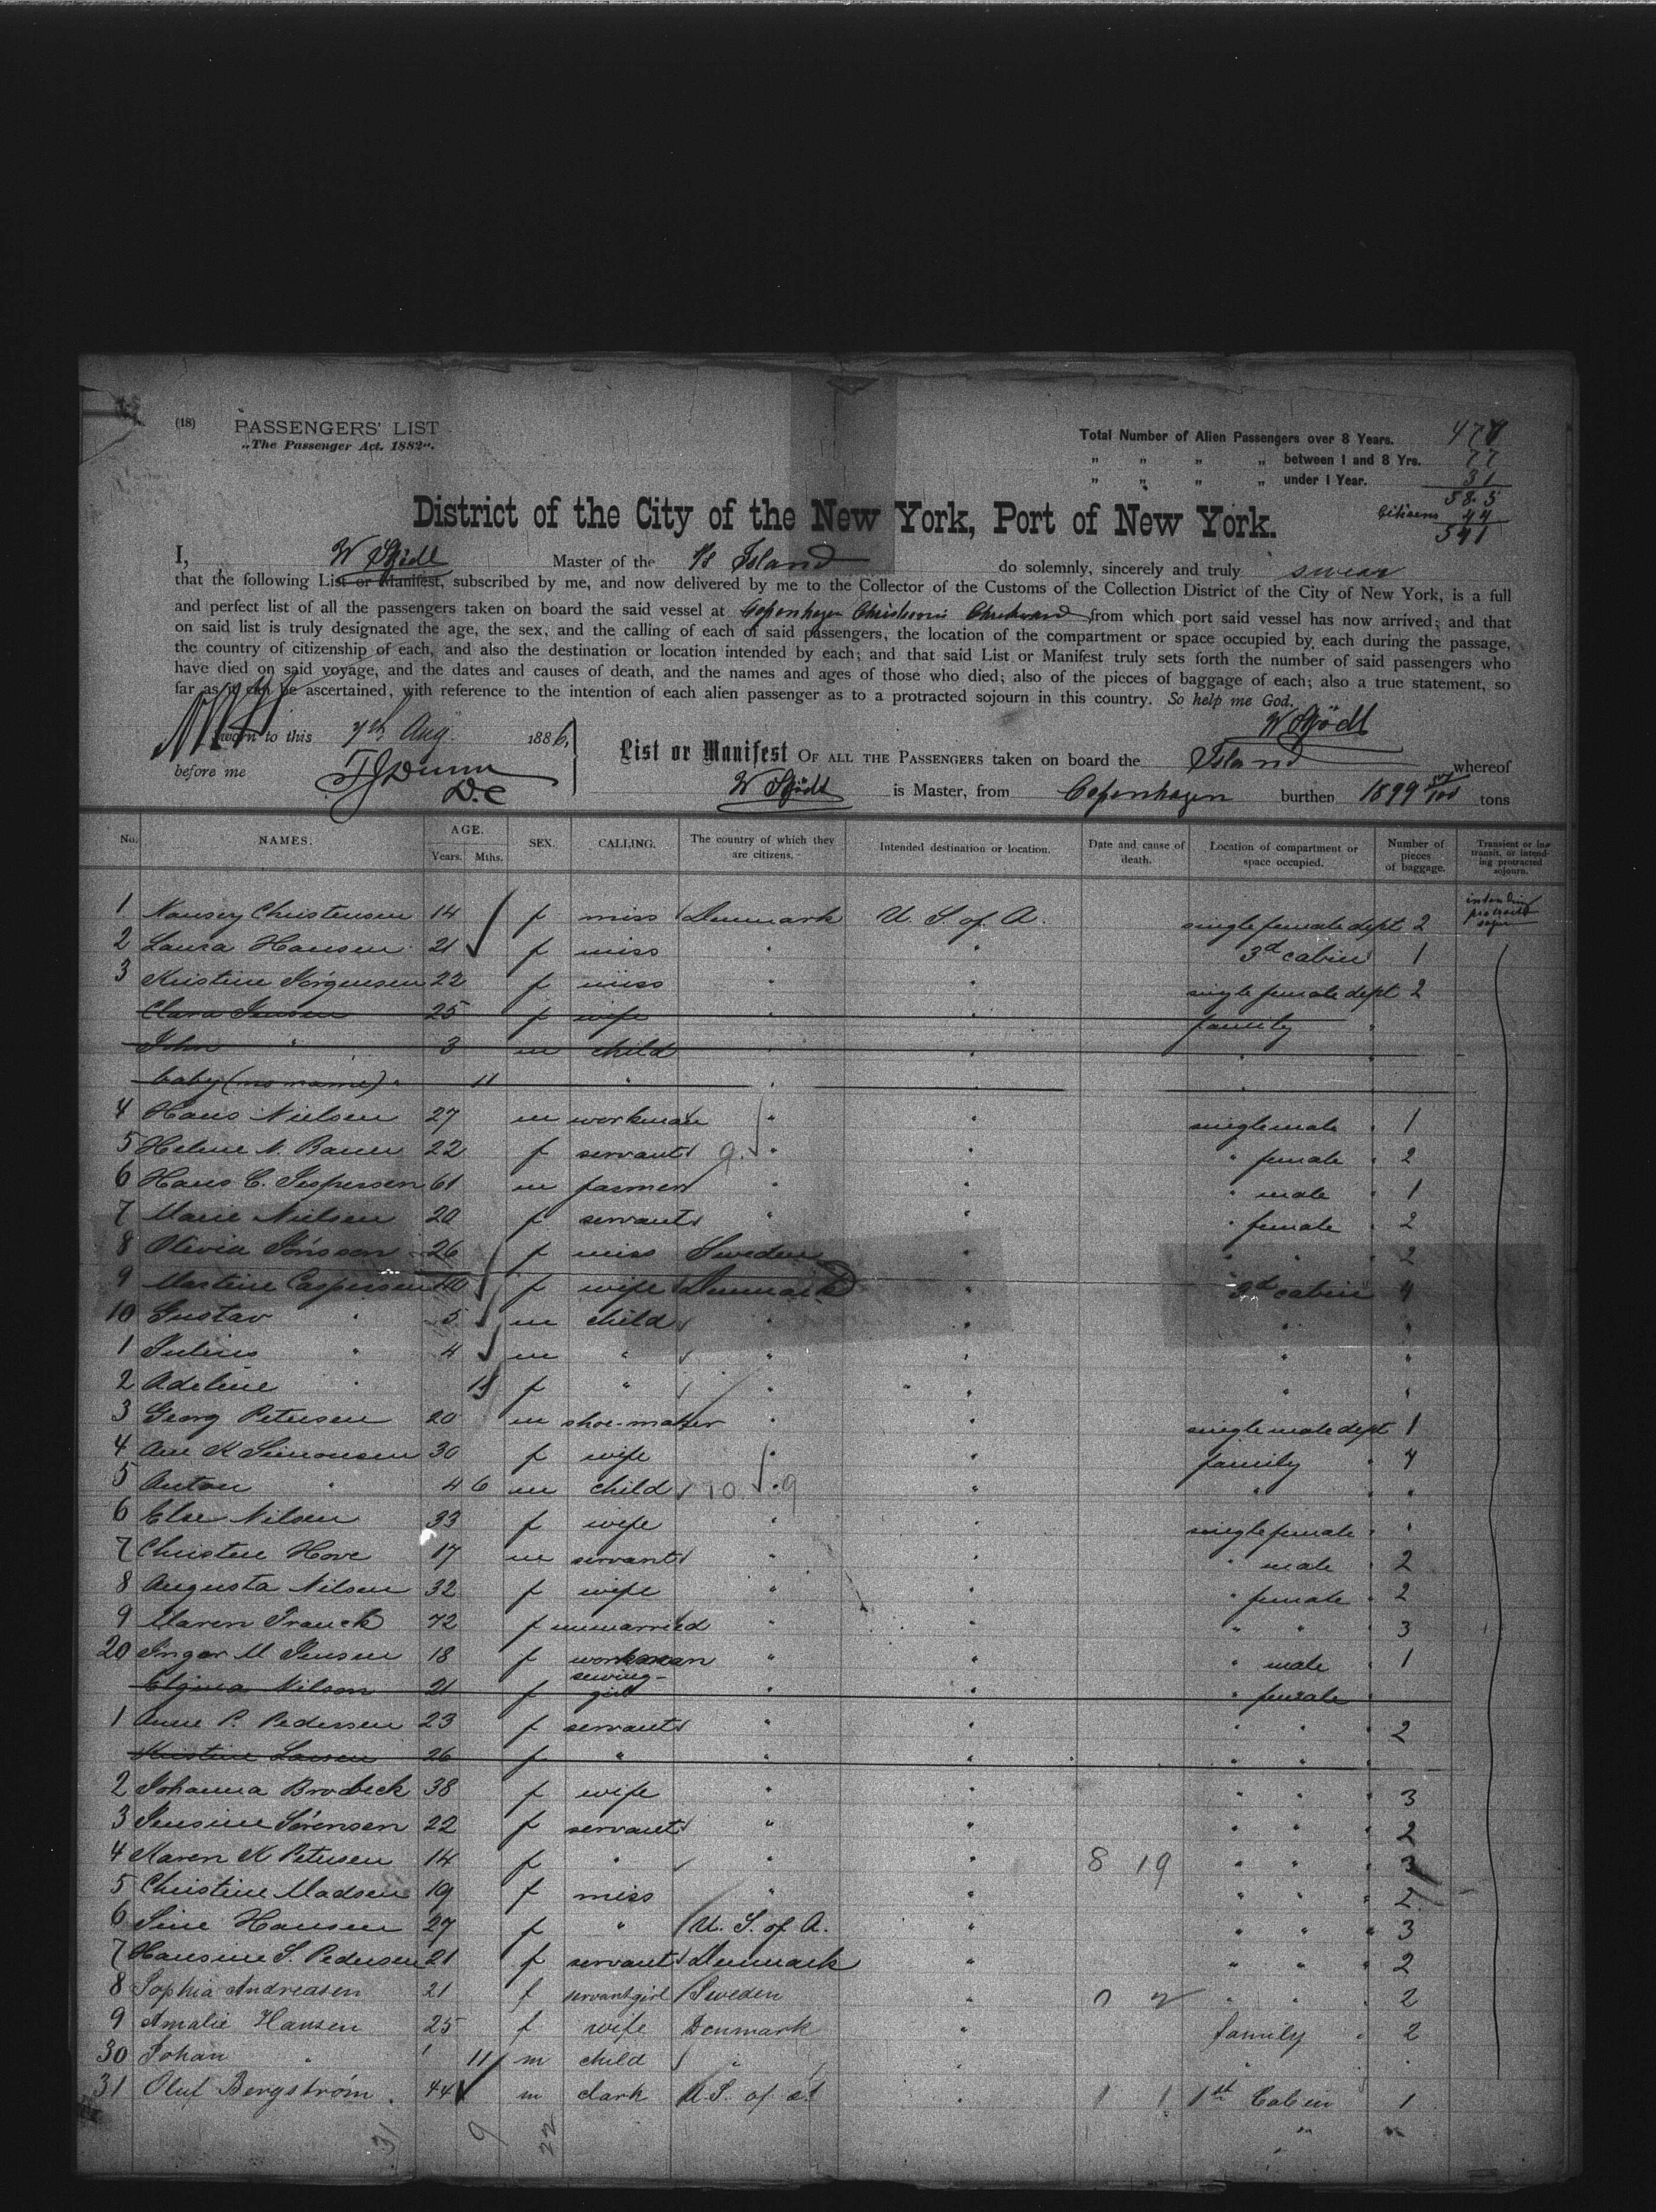 (18) PASSENGERS' LIST
„The Passenger Act. 1882“.
Total Number of Alien Passengers over 8 Years. 477
„ „ „ „ between 1 and 8 Yrs. 77
„ „ „ „ under 1 Year. 31
585
Citizens 44
541
District of the City of the New York, Port of New York.
I, W Skjödt Master of the S/s Island do solemnly, sincerely and truly swear
that the following List or Manifest, subscribed by me, and now delivered by me to the Collector of the Customs of the Collection District of the City of New York, is a full
and perfect list of all the passengers taken on board the said vessel at Copenhagen from which port said vessel has now arrived; and that
on said list is truly designated the age, the sex, and the calling of each of said passengers, the location of the compartment or space occupied by each during the passage,
the country of citizenship of each, and also the destination or location intended by each; and that said List or Manifest truly sets forth the number of said passengers who
have died on said voyage, and the dates and causes of death, and the names and ages of those who died; also of the pieces of baggage of each; also a true statement, so
far as it can be ascertained, with reference to the intention of each alien passenger as to a protracted sojourn in this country. So help me God.
W Skjödt
Sworn to this 7th Aug. 1886,
before me TJ Dunn
D.C
List or Manifest OF ALL THE PASSENGERS taken on board the Island whereof
W Skjödt is Master, from Copenhagen burthen 1899 tons
No. NAMES. AGE. Years. Mths. SEX. CALLING. The country of which they are citizens. Intended destination or location. Date and cause of death. Location of compartment or space occupied. Number of pieces of baggage. Transient or in transit, or intending protracted sojourn.
1 Nansey Christensen 14 f miss Denmark U. S. of A. single female dept 2 intending
2 Laura Hansen 21 f miss " " 3d cabin 1
3 Kristine Jörgensen 22 f miss " " single female dept 2
Clara Jensen 25 f wife " " family "
John " 3 m child " " " "
baby (no name) " 11 " " " "
4 Hans Nielsen 27 m workman " " single male 1
5 Helene N. Bauer 22 f servant 9. " " " female " 2
6 Hans C. Jespersen 61 m farmer " " " male " 1
7 Marie Nielsen 20 f servant " " " female " 2
8 Olivia Jönsson 26 f miss Sweden " " " 2
9 Martine Caspersen 40 f wife Denmark " 2d cabin 4
10 Gustav " 5 m child " " " "
1 Julius " 4 m " " " " "
2 Adeline " 11 f " " " " "
3 Georg Petersen 20 m shoe-maker " " single male dept 1
4 Ane K Simonsen 30 f wife " " family " 4
5 Anton " 4 6 m child 10 " 9 " " "
6 Else Nilsen 33 f wife " " single female " "
7 Christen Hove 17 m servant " " " male " 2
8 Augusta Nilsen 32 f wife " " " female " 2
9 Maren Franck 72 f unmarried " " " " 3
20 Inger M Jensen 18 f workman " " " male " 1
Elgina Nilson 21 f sewing-girl " " " female "
1 Anne P. Pedersen 23 f servant " " " " " 2
Kristine Larsen 26 f " " " " " "
2 Johanna Brobeck 38 f wife " " " " " 3
3 Jensine Sörensen 22 f servant " " " " " 2
4 Maren K Petersen 14 f " " " 8 19 " " " 3
5 Christine Madsen 19 f miss " " " " " 2
6 Sine Hansen 27 f " U. S. of A. " " " " 3
7 Hansine S. Pedersen 21 f servant Denmark " " " " 2
8 Sophia Andreasen 21 f servantgirl Sweden " " " 2
9 Amalie Hansen 25 f wife Denmark " family " 2
30 Johan " 11 m child " " " "
31 Oluf Bergström 44 m clark U.S. of a " 1 1 1st Cabin 1
31 9 22